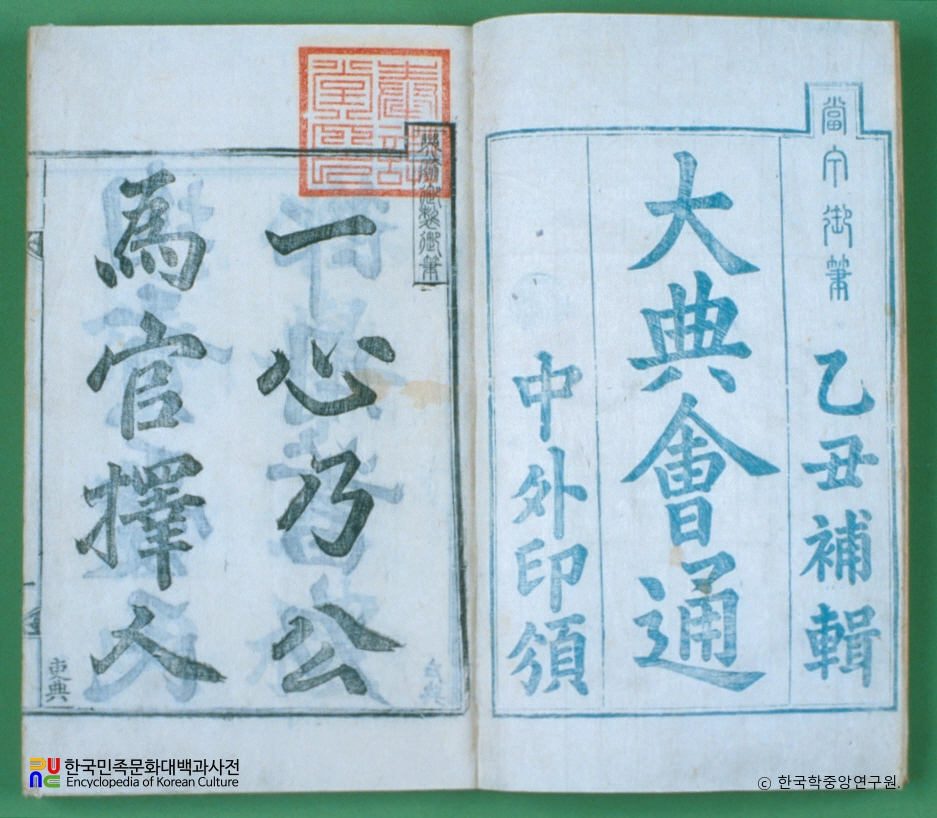 當宁御筆
乙丑補輯
大典會通
中外印頒
奉謨堂印
英廟御製御筆
一心乃公
為官擇人
吏典
한국민족문화대백과사전
Encyclopedia of Korean Culture
ⓒ 한국학중앙연구원.